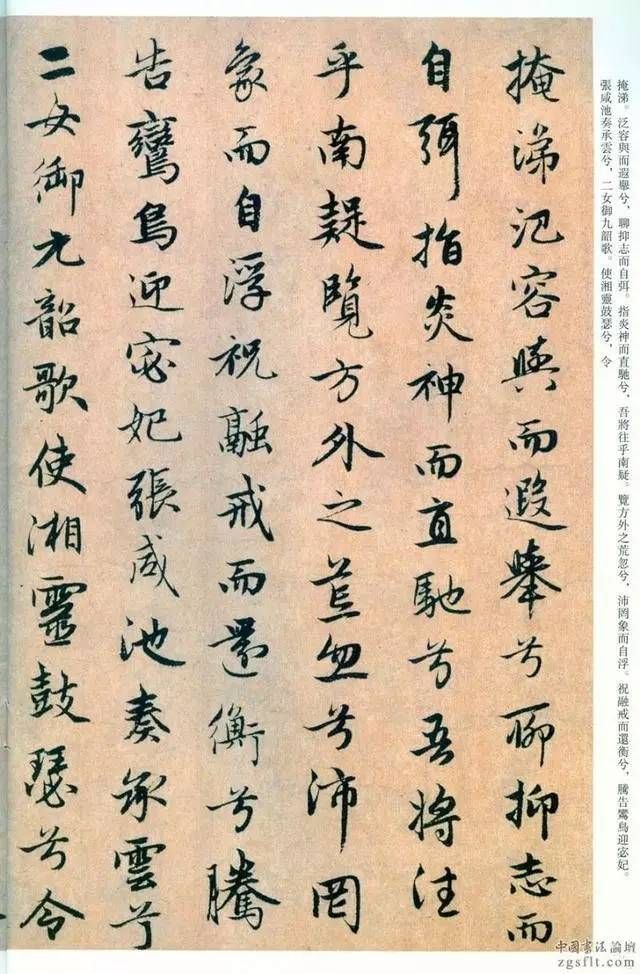 掩涕。泛容與而遐舉兮，聊抑志而自弭。指炎神而直馳兮，吾將往乎南疑。覽方外之荒忽兮，沛罔象而自浮。祝融戒而還衡兮，騰告鸞鳥迎宓妃。
張咸池奏承雲兮，二女御九韶歌。使湘靈鼓瑟兮，令
掩涕氾容與而遐舉兮聊抑志而
自弭指炎神而直馳兮吾將往
乎南疑覽方外之荒忽兮沛罔
象而自浮祝融戒而還衡兮騰
告鸞鳥迎宓妃張咸池奏承雲兮
二女御九韶歌使湘靈鼓瑟兮令
中國書法論壇
zgsflt.com